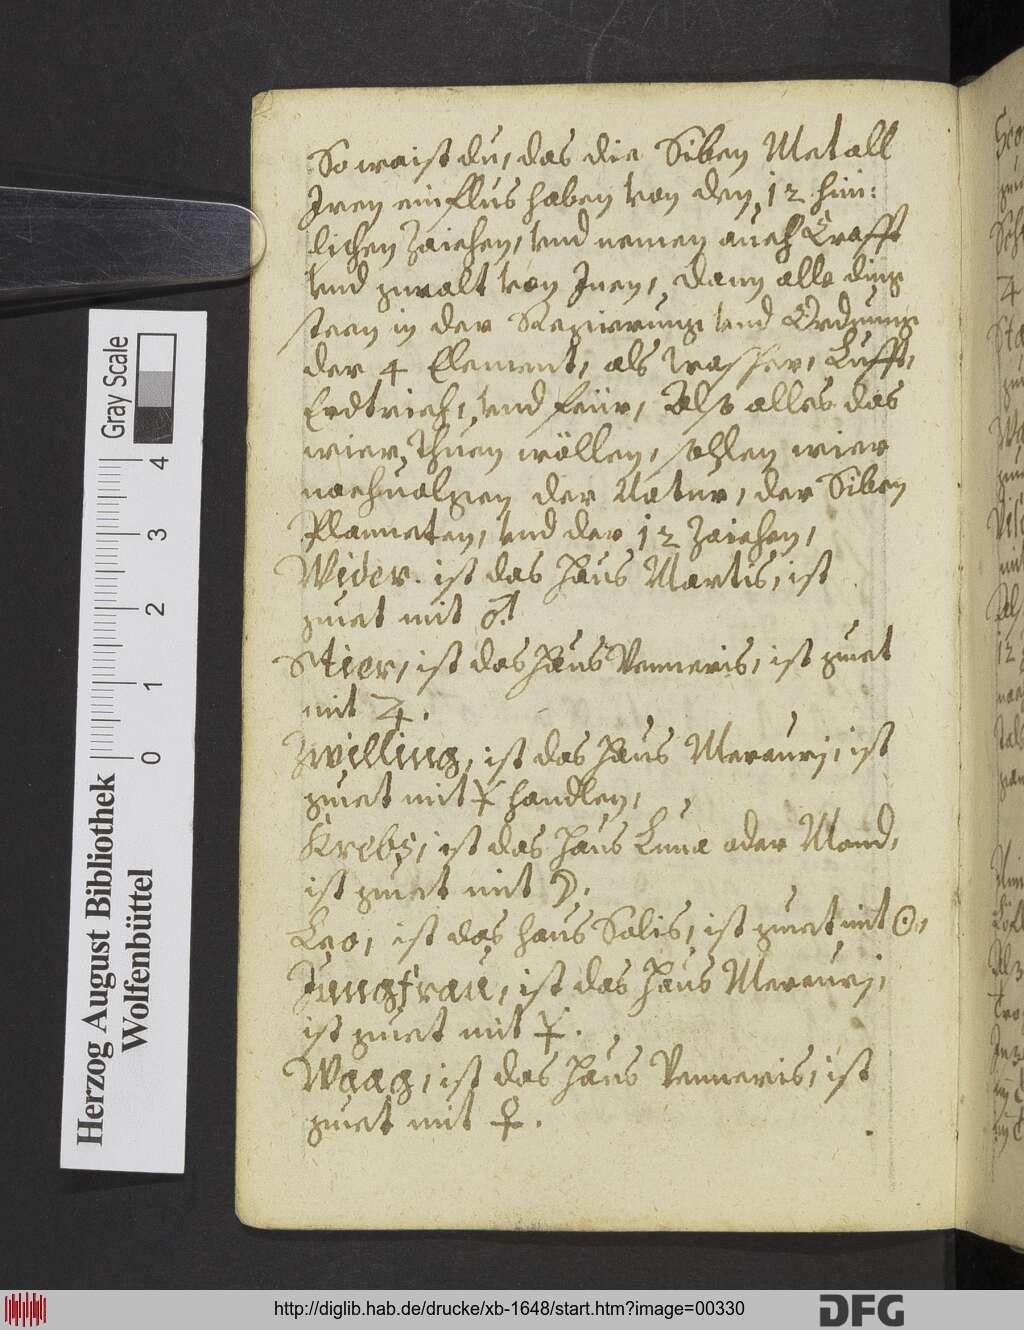 So waist du, das die Siben Metall
Iren einflus haben von den 12 him:
lischen Zaichen, vnd nemen auch Crafft
vnd gwalt von Inen, dann alle ding
steen in der Regierung vnd Ordnung
der 4 Element, als Wasser, Lufft,
Erdtrich, vnd feür, Also alles das
wier Thuen wöllen, sollen wier
nachuolgen der Natur, der Siben
Planneten, vnd der 12 Zaichen,
Wider. ist das Haus Martis, ist
guet mit ♂.
Stier, ist das Haus Venneris, ist guet
mit ♃.
Zwilling, ist das Haus Mercurj, ist
guet mit ☿ handlen,
Krebs, ist das Haus Luna oder Mond,
ist guet mit ☽.
Leo, ist das haus Solis, ist guet mit ☉,
Jungfrau, ist das Haus Mercurj,
ist guet mit ☿.
Waag, ist das Haus Venneris, ist
guet mit ♀.
Gray Scale
0 1 2 3 4
Herzog August Bibliothek
Wolfenbüttel
http://diglib.hab.de/drucke/xb-1648/start.htm?image=00330
DFG